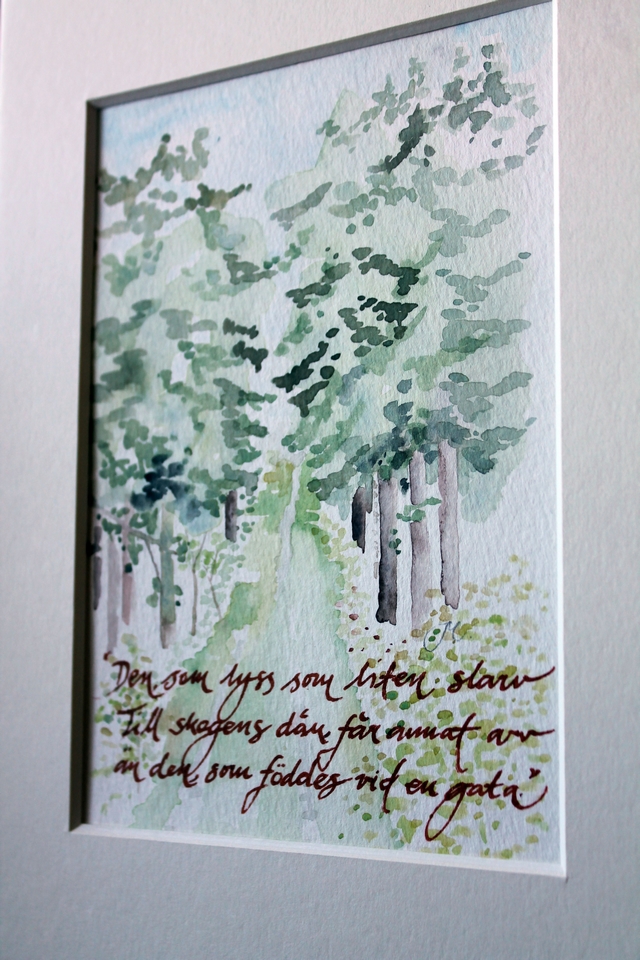 "Den som lyss som liten slarv
Till skogens dån får annat arv
än den som föddes vid en gata."